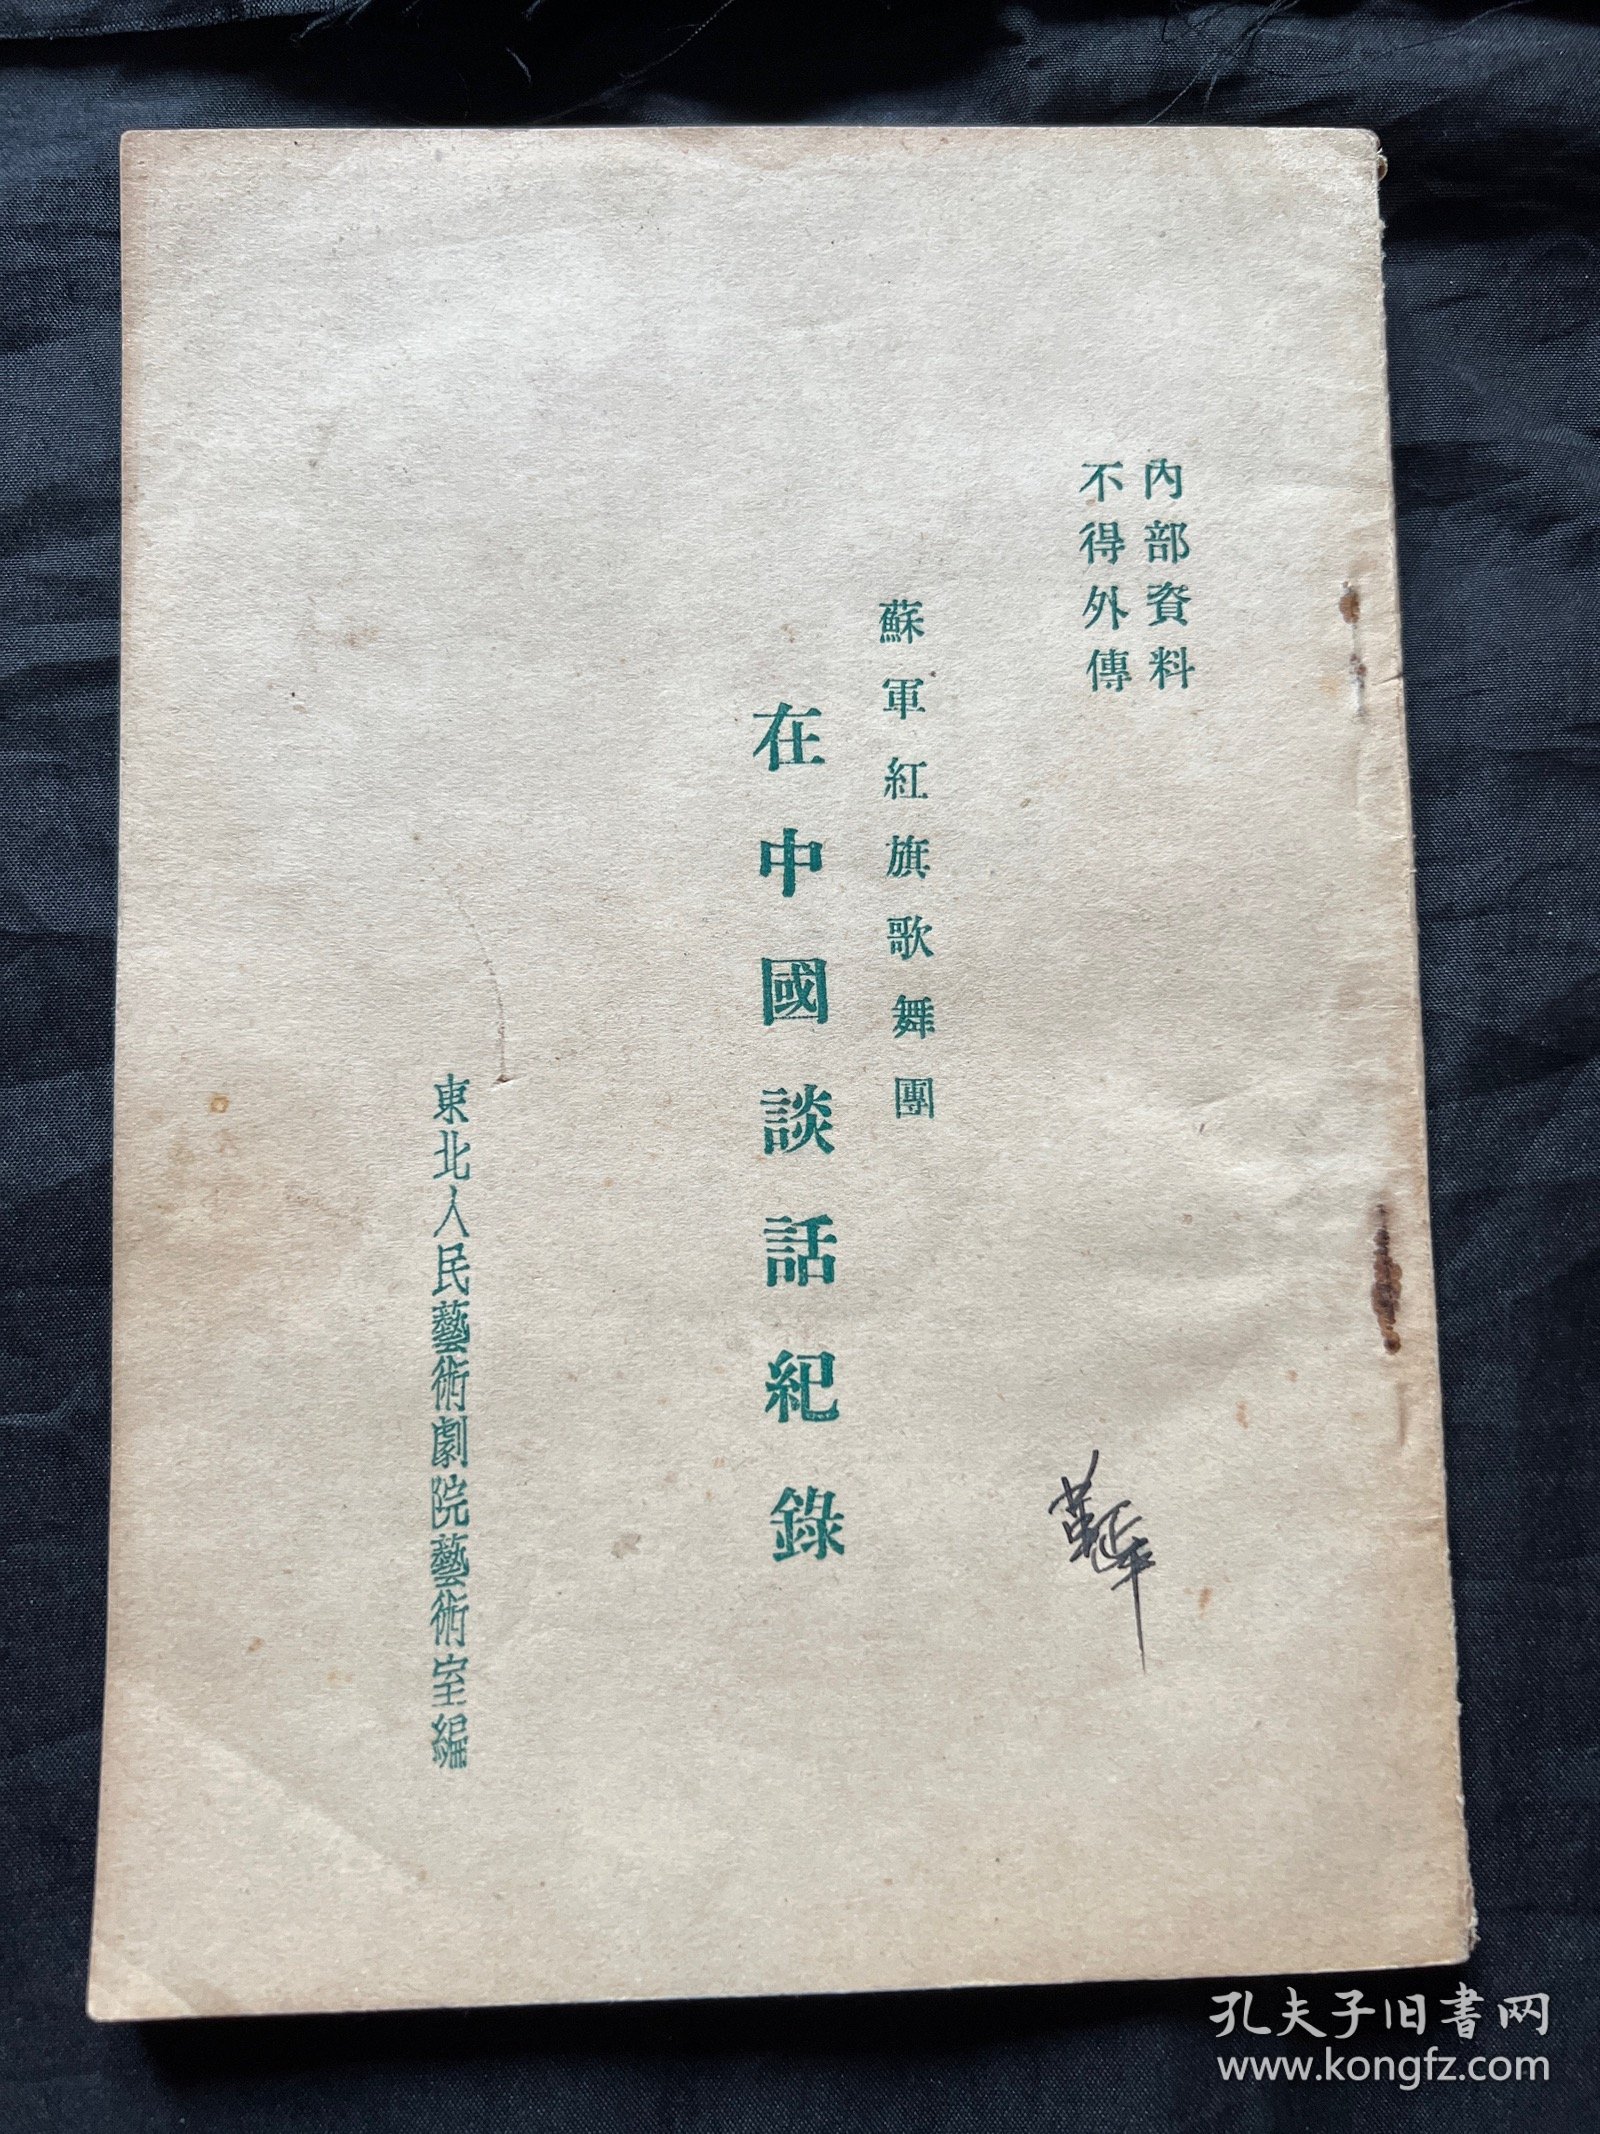 內部資料
不得外傳
蘇軍紅旗歌舞團
在中國談話紀錄
東北人民藝術劇院藝術室編
孔夫子旧書网
www.kongfz.com